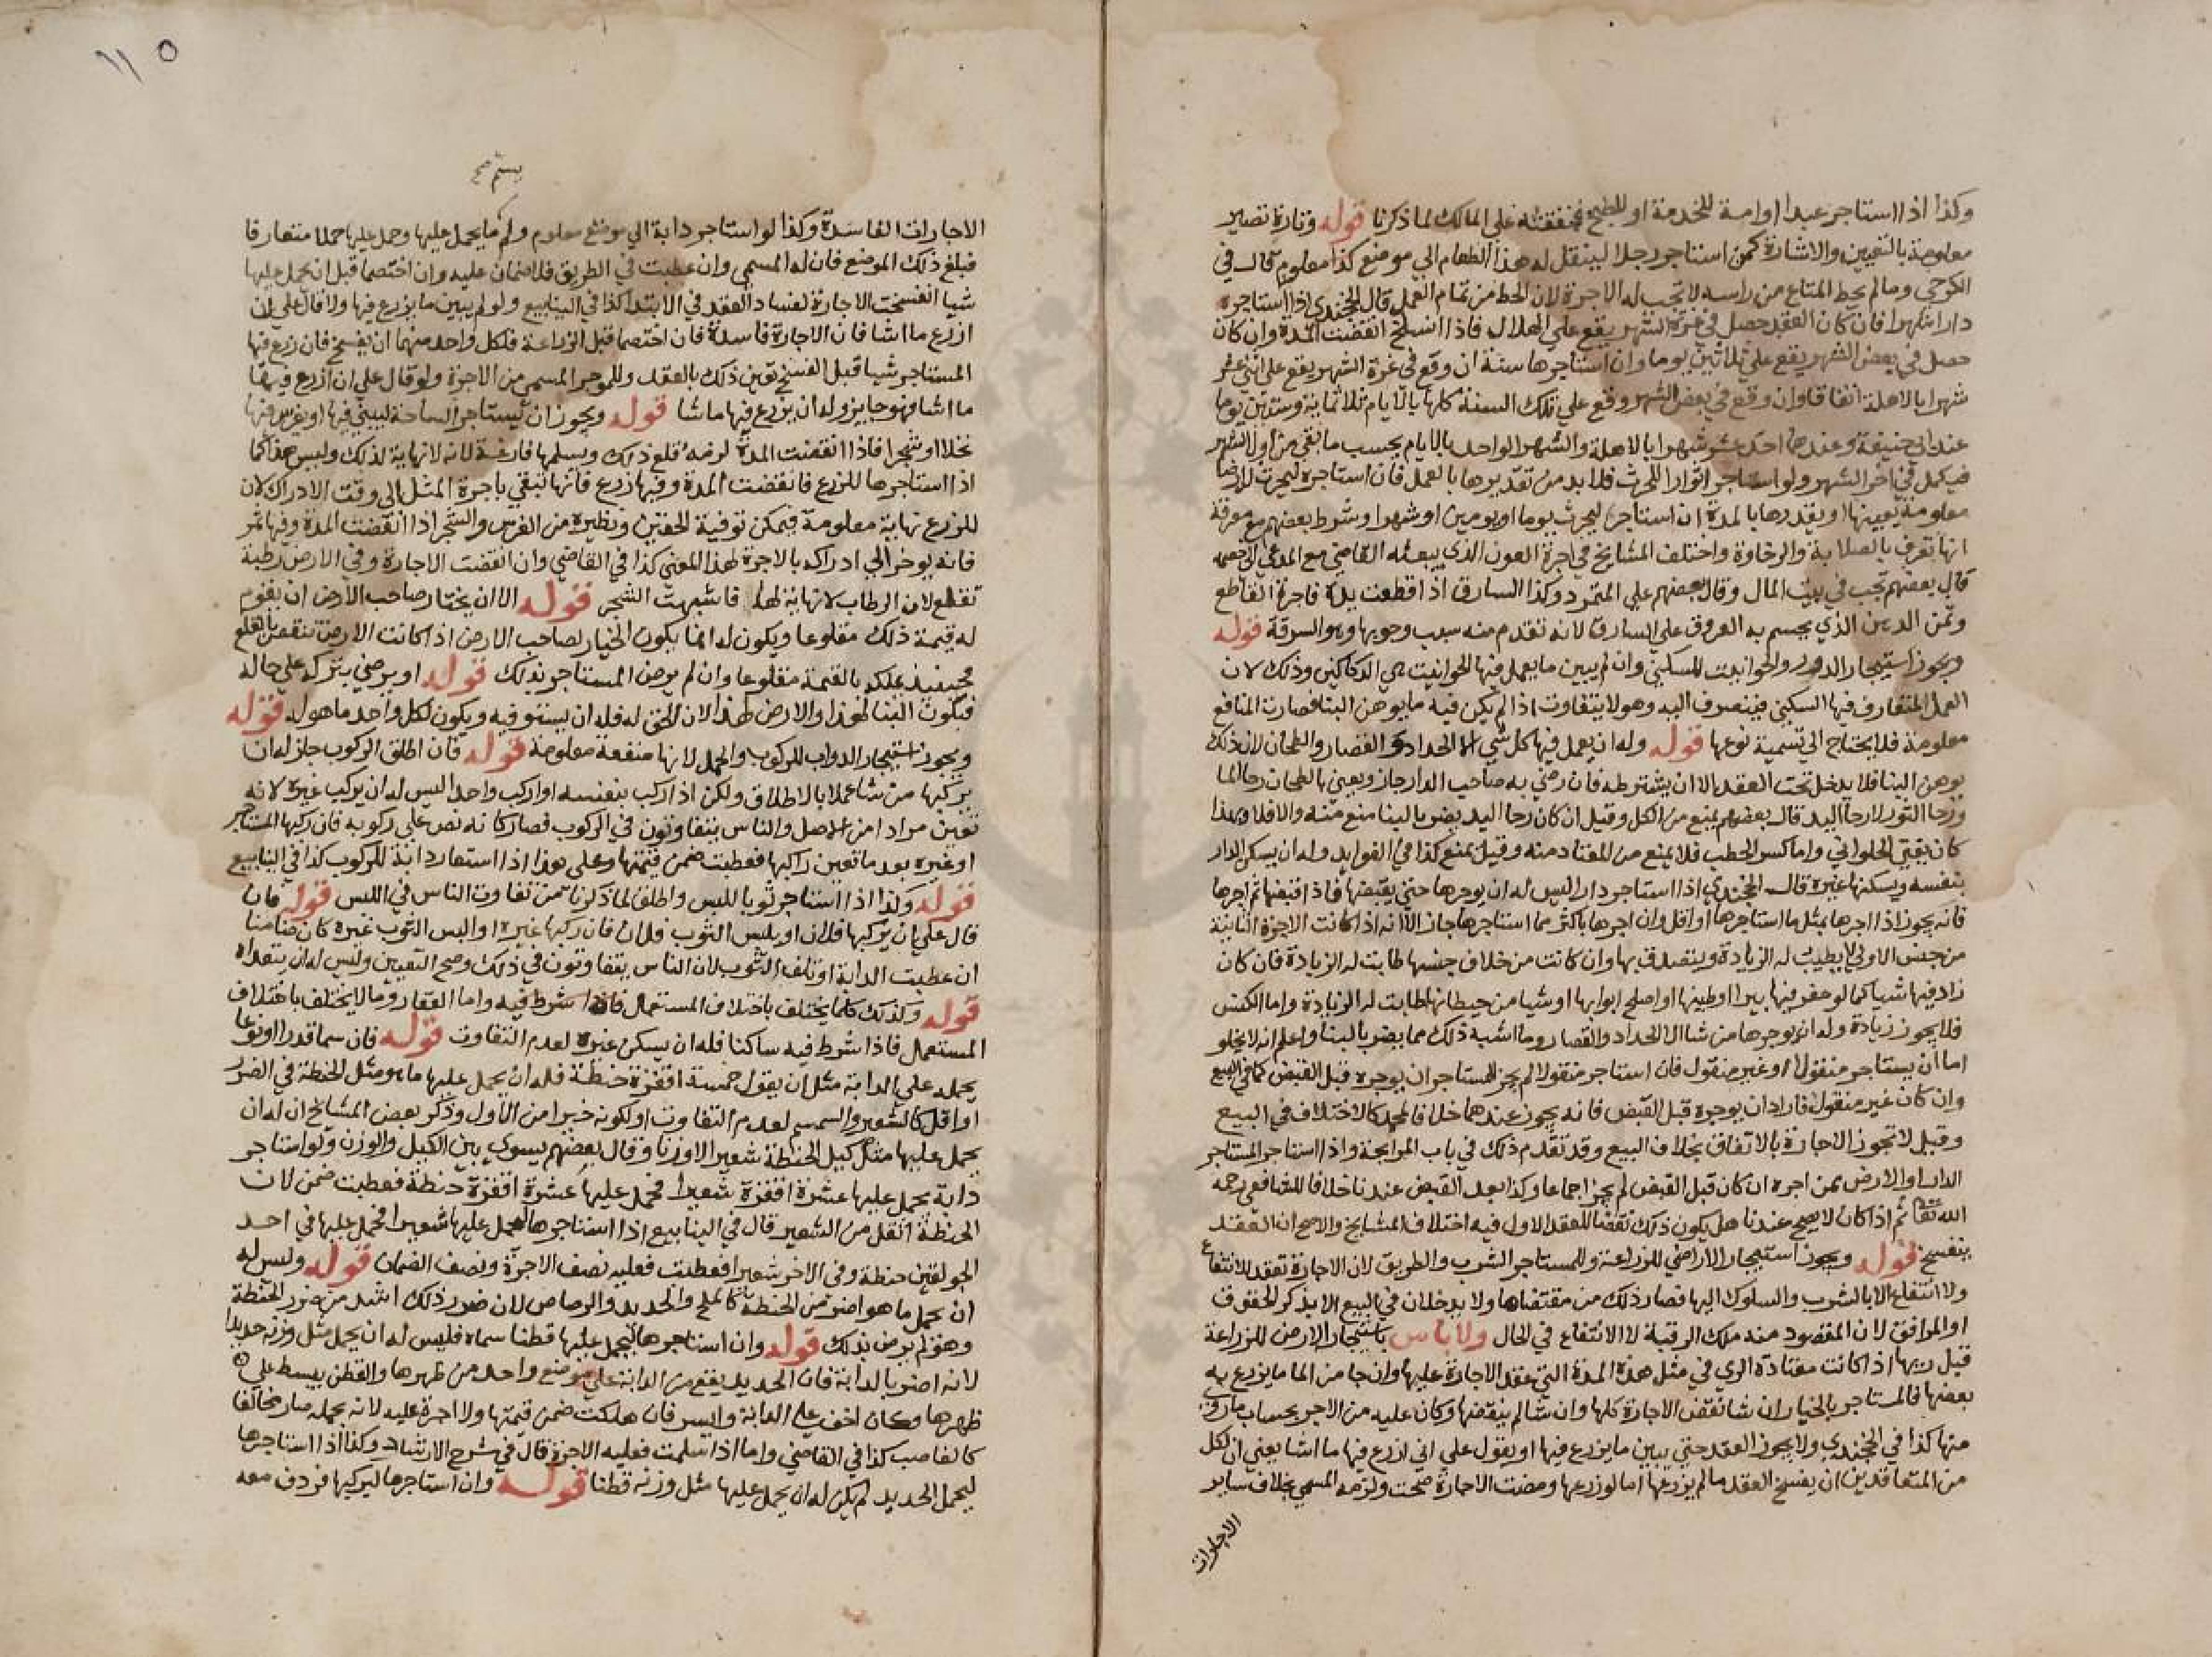 وكذا اذا استاجر عبدا او امة للخدمة او للطبخ فنفقته على المالك لما ذكرنا قوله وتارة تصير
معلومة بالتعيين والاشارة كمن استاجر رجلا لينقل له هذا الطعام الي موضع كذا معلوم قال في
الكرخي وما لم يحط المتاع من راسه لا تجب له الاجرة لان الحط من تمام العمل قال الخجندي اذا استاجره
دارا شهرا فان كان العقد حصل في غرة الشهر يقع علي الهلال فاذا انسلخ انقضت المدة وان كان
حصل في بعض الشهر يقع علي ثلاثين يوما وان استاجرها سنة ان وقع في غرة الشهر يقع على اثني عشر
شهرا بالاهلة اتفاقا وان وقع في بعض الشهر وقع علي تلك السنة كلها بالايام ثلاثمائة وستين يوما
عند ابي حنيفة وعندهما احد عشر شهرا بالاهلة والشهر الواحد بالايام بحسب ما بقي من اول الشهر
فيكمل في اخر الشهر ولو استاجر اثوارا للحرث فلا بد من تقديرها بالعمل فان استاجره ليحرث له ارضا
معلومة بعينها او يقدرها بالمدة ان استاجره ليحرث يوما او يومين او شهرا وشرط بعضهم مع معرفة
انها تعرف بالصلابة والرخاوة واختلف المشايخ في اجرة العون الذي يبعثه القاضي مع المدعي لاخصمه
قال بعضهم تجب في بيت المال وقال بعضهم علي المتمرد وكذا السارق اذا قطعت يده فاجرة القاطع
وثمن الدهن الذي يحسم به العروق علي السارق لانه تقدم منه سبب وجوبها وهو السرقة قوله
ويجوز استيجار الدور والحوانيت للسكني وان لم يبين ما يعمل فيها الحوانيت هي الدكاكين وذلك لان
العمل المتعارف فيها السكني فينصرف اليه وهو لا يتفاوت اذا لم يكن فيه ما يوهن البنا فصارت المنافع
معلومة فلا يحتاج الي تسمية نوعها قوله وله ان يعمل فيها كل شي الا الحداده والقصار والطحان لان ذلك
يوهن البنا فلا يدخل تحت العقد الا ان يشترطه فان رضي به صاحب الدار جاز ويعني بالطحان رحا الما
ورحا الثور لا رحا اليد قال بعضهم يمنع من الكل وقيل ان كان رحا اليد يضر بالبنا منع منه والا فلا وبهذا
كان يفتي الحلواني واما كسر الحطب فلا يمنع من المعتاد منه وقيل يمنع كذا في الفوايد وله ان يسكن الدار
بنفسه ويسكنها غيره قال الخجندي اذا استاجر دارا ليس له ان يوجرها حتي يقبضها فاذا قبضها ثم اجرها
فانه يجوز اذا اجرها بمثل ما استاجرها او اقل وان اجرها باكثر مما استاجرها جاز الا انه اذا كانت الاجرة الثانية
من جنس الاولي لا يطيب له الزيادة ويتصدق بها وان كانت من خلاف جنسها طابت له الزيادة فان كان
زاد فيها شيا كما لو حفر فيها بيرا او طينها او اصلح ابوابها او شيا من حيطانها طابت له الزيادة واما الكنس
فلا يجوز زيادة وله ان يوجرها من شا الا الحداد والقصار وما اشبه ذلك مما يضر بالبنا واعلم انه لا يخلو
اما ان يستاجر منقولا او غير منقول فان استاجر منقولا لم يجز للمستاجر ان يوجره قبل القبض كما في البيع
وان كان غير منقول فاراد ان يوجره قبل القبض فانه يجوز عندهما خلافا لمحمد كالاختلاف في البيع
وقيل لا تجوز الاجارة بالاتفاق بخلاف البيع وقد تقدم ذلك في باب المرابحة واذا استاجر المستاجر
الدار او الارض ممن اجره ان كان قبل القبض لم يجز اجماعا وكذا بعد القبض عندنا خلافا للشافعي رحمه
الله تعا ثم اذا كان لا يصح عندنا هل يكون ذلك نقضا للعقد الاول فيه اختلاف المشايخ والاصح ان العقد
ينفسخ قوله ويجوز استيجار الاراضي للزراعة وللمستاجر الشرب والطريق لان الاجارة تعقد للانتفاع
ولا انتفاع الا بالشرب والسلوك اليها فصار ذلك من مقتضاها ولا يدخلان في البيع الا بذكر الحقوق
او المرافق لان المقصود منه ملك الرقبة لا الانتفاع في الحال ولا باس باستيجار الارض للزراعة
قبل ريها اذا كانت معتادة الري في مثل هذه المدة التي عقد الاجارة عليها وان جا من الما ما يزرع به
بعضها فالمستاجر بالخيار ان شا نقض الاجارة كلها وان شا لم ينقضها وكان عليه من الاجر بحساب ما روي
منها كذا في الخجندي ولا يجوز العقد حتي يبين ما يزرع فيها او يقول علي اني ازرع فيها ما اشا يعني ان لكل
من المتعاقدين ان يفسخ العقد ما لم يزرعها اما لو زرعها ومضت الاجارة صحت ولزمه المسمي بخلاف ساير
الاجارات
١١٥
الاجارات الفاسدة وكذا لو استاجر دابة الي موضع معلوم ولم يسم ما يحمل عليها وحمل عليها حملا متعارفا
فبلغ ذلك الموضع فان له المسمي وان عطبت في الطريق فلا ضمان عليه وان اختصما قبل ان يحمل عليها
شيا انفسخت الاجارة لفساد العقد في الابتدا كذا في الينابيع ولو لم يبين ما يزرع فيها ولا قال علي ان
ازرع ما اشا فان الاجارة فاسدة فان اختصما قبل الزراعة فلكل واحد منهما ان يفسخ فان زرع فيها
المستاجر شيا قبل الفسخ تعين ذلك بالعقد وللموجر المسمي من الاجرة ولو قال علي ان ازرع فيها
ما اشا فهو جايز وله ان يزرع فيها ما شا قوله ويجوز ان يستاجر الساحة ليبني فيها او يغرس فيها
نخلا او شجرا فاذا انقضت المدة لزمه قلع ذلك ويسلمها فارغة لانه لا نهاية لذلك وليس هذا كما
اذا استاجرها للزرع فانقضت المدة وفيها زرع فانها تبقي باجرة المثل الي وقت الادراك لان
للزرع نهاية معلومة فيمكن توفية الحقين ونظيره من الغرس والشجر اذا انقضت المدة وفيها ثمر
فانه يوخر الي ادراكه بالاجرة لهذا المعني كذا في القاضي وان انقضت الاجارة وفي الارض رطبة
تقلع لان الرطاب لا نهاية لها فاشبهت الشجر قوله الا ان يختار صاحب الارض ان يغرم
له قيمة ذلك مقلوعا ويكون له انما يكون الخيار لصاحب الارض اذا كانت الارض تنقص بالقلع
فحينيذ يملكه بالقيمة مقلوعا وان لم يرض المستاجر بذلك قوله او يرضي بتركه علي حاله
فيكون البنا لهذا والارض لهذا لان الحق له فله ان يستوفيه ويكون لكل واحد ما هو له قوله
ويجوز استيجار الدواب للركوب والحمل لانها منفعة معلومة قوله فان اطلق الركوب جاز له ان
يركبها من شا عملا بالاطلاق ولكن اذا ركب بنفسه او اركب واحدا ليس له ان يركب غيره لانه
تعين مرادا من الاصل والناس يتفاوتون في الركوب فصار كانه نص علي ركوبه فان ركبها المستاجر
او غيره بعد ما تعين راكبها فعطبت ضمن قيمتها وعلى هذا اذا استعار دابة للركوب كذا في الينابيع
قوله وكذا اذا استاجر ثوبا للبس واطلق لما ذكرنا من تفاوت الناس في اللبس قوله فان
قال علي ان يركبها فلان او يلبس الثوب فلان فان ركبها غيره او البس الثوب غيره كان ضامنا
ان عطبت الدابة او تلف الثوب لان الناس يتفاوتون في ذلك وصح التعيين وليس له ان يتعداه
قوله وكذلك كلما يختلف باختلاف المستعمل فاذا شرط فيه واما العقار وما لا يختلف باختلاف
المستعمل فاذا شرط فيه ساكنا فله ان يسكن غيره لعدم التفاوت قوله فان سما قدرا او نوعا
يحمله علي الدابة مثل ان يقول خمسة اقفزة حنطة فله ان يحمل عليها ما هو مثل الحنطة في الضرر
او اقل كالشعير والسمسم لعدم التفاوت او لكونه خيرا من الاول وذكر بعض المشايخ ان له ان
يحمل عليها مثل كيل الحنطة شعيرا لا وزنا وقال بعضهم يسوي بين الكيل والوزن ولو استاجر
دابة يحمل عليها عشرة اقفزة شعيرا فحمل عليها عشرة اقفزة حنطة فعطبت ضمن لان
الحنطة اثقل من الشعير قال في الينابيع اذا استاجرها ليحمل عليها شعيرا فحمل عليها في احد
الجولقين حنطة وفي الاخر شعيرا فعطبت فعليه نصف الاجرة ونصف الضمان قوله وليس له
ان يحمل ما هو اضر من الحنطة كالملح والحديد والرصاص لان ضرر ذلك اشد من ضرر الحنطة
وهو لم يرض بذلك قوله وان استاجرها ليحمل عليها قطنا سماه فليس له ان يحمل مثل وزنه حديدا
لانه اضر بالدابة فان الحديد يقع من الدابة علي موضع واحد من ظهرها والقطن ينبسط على
ظهرها وكان اخف علي الدابة وايسر فان هلكت ضمن قيمتها ولا اجرة عليه لانه بحمله صار مخالفا
كالغاصب كذا في القاضي واما اذا سلمت فعليه الاجرة قال في شرح الارشاد وكذا اذا استاجرها
ليحمل الحديد لم يكن له ان يحمل عليها مثل وزنه قطنا قوله وان استاجرها ليركبها فردف معه